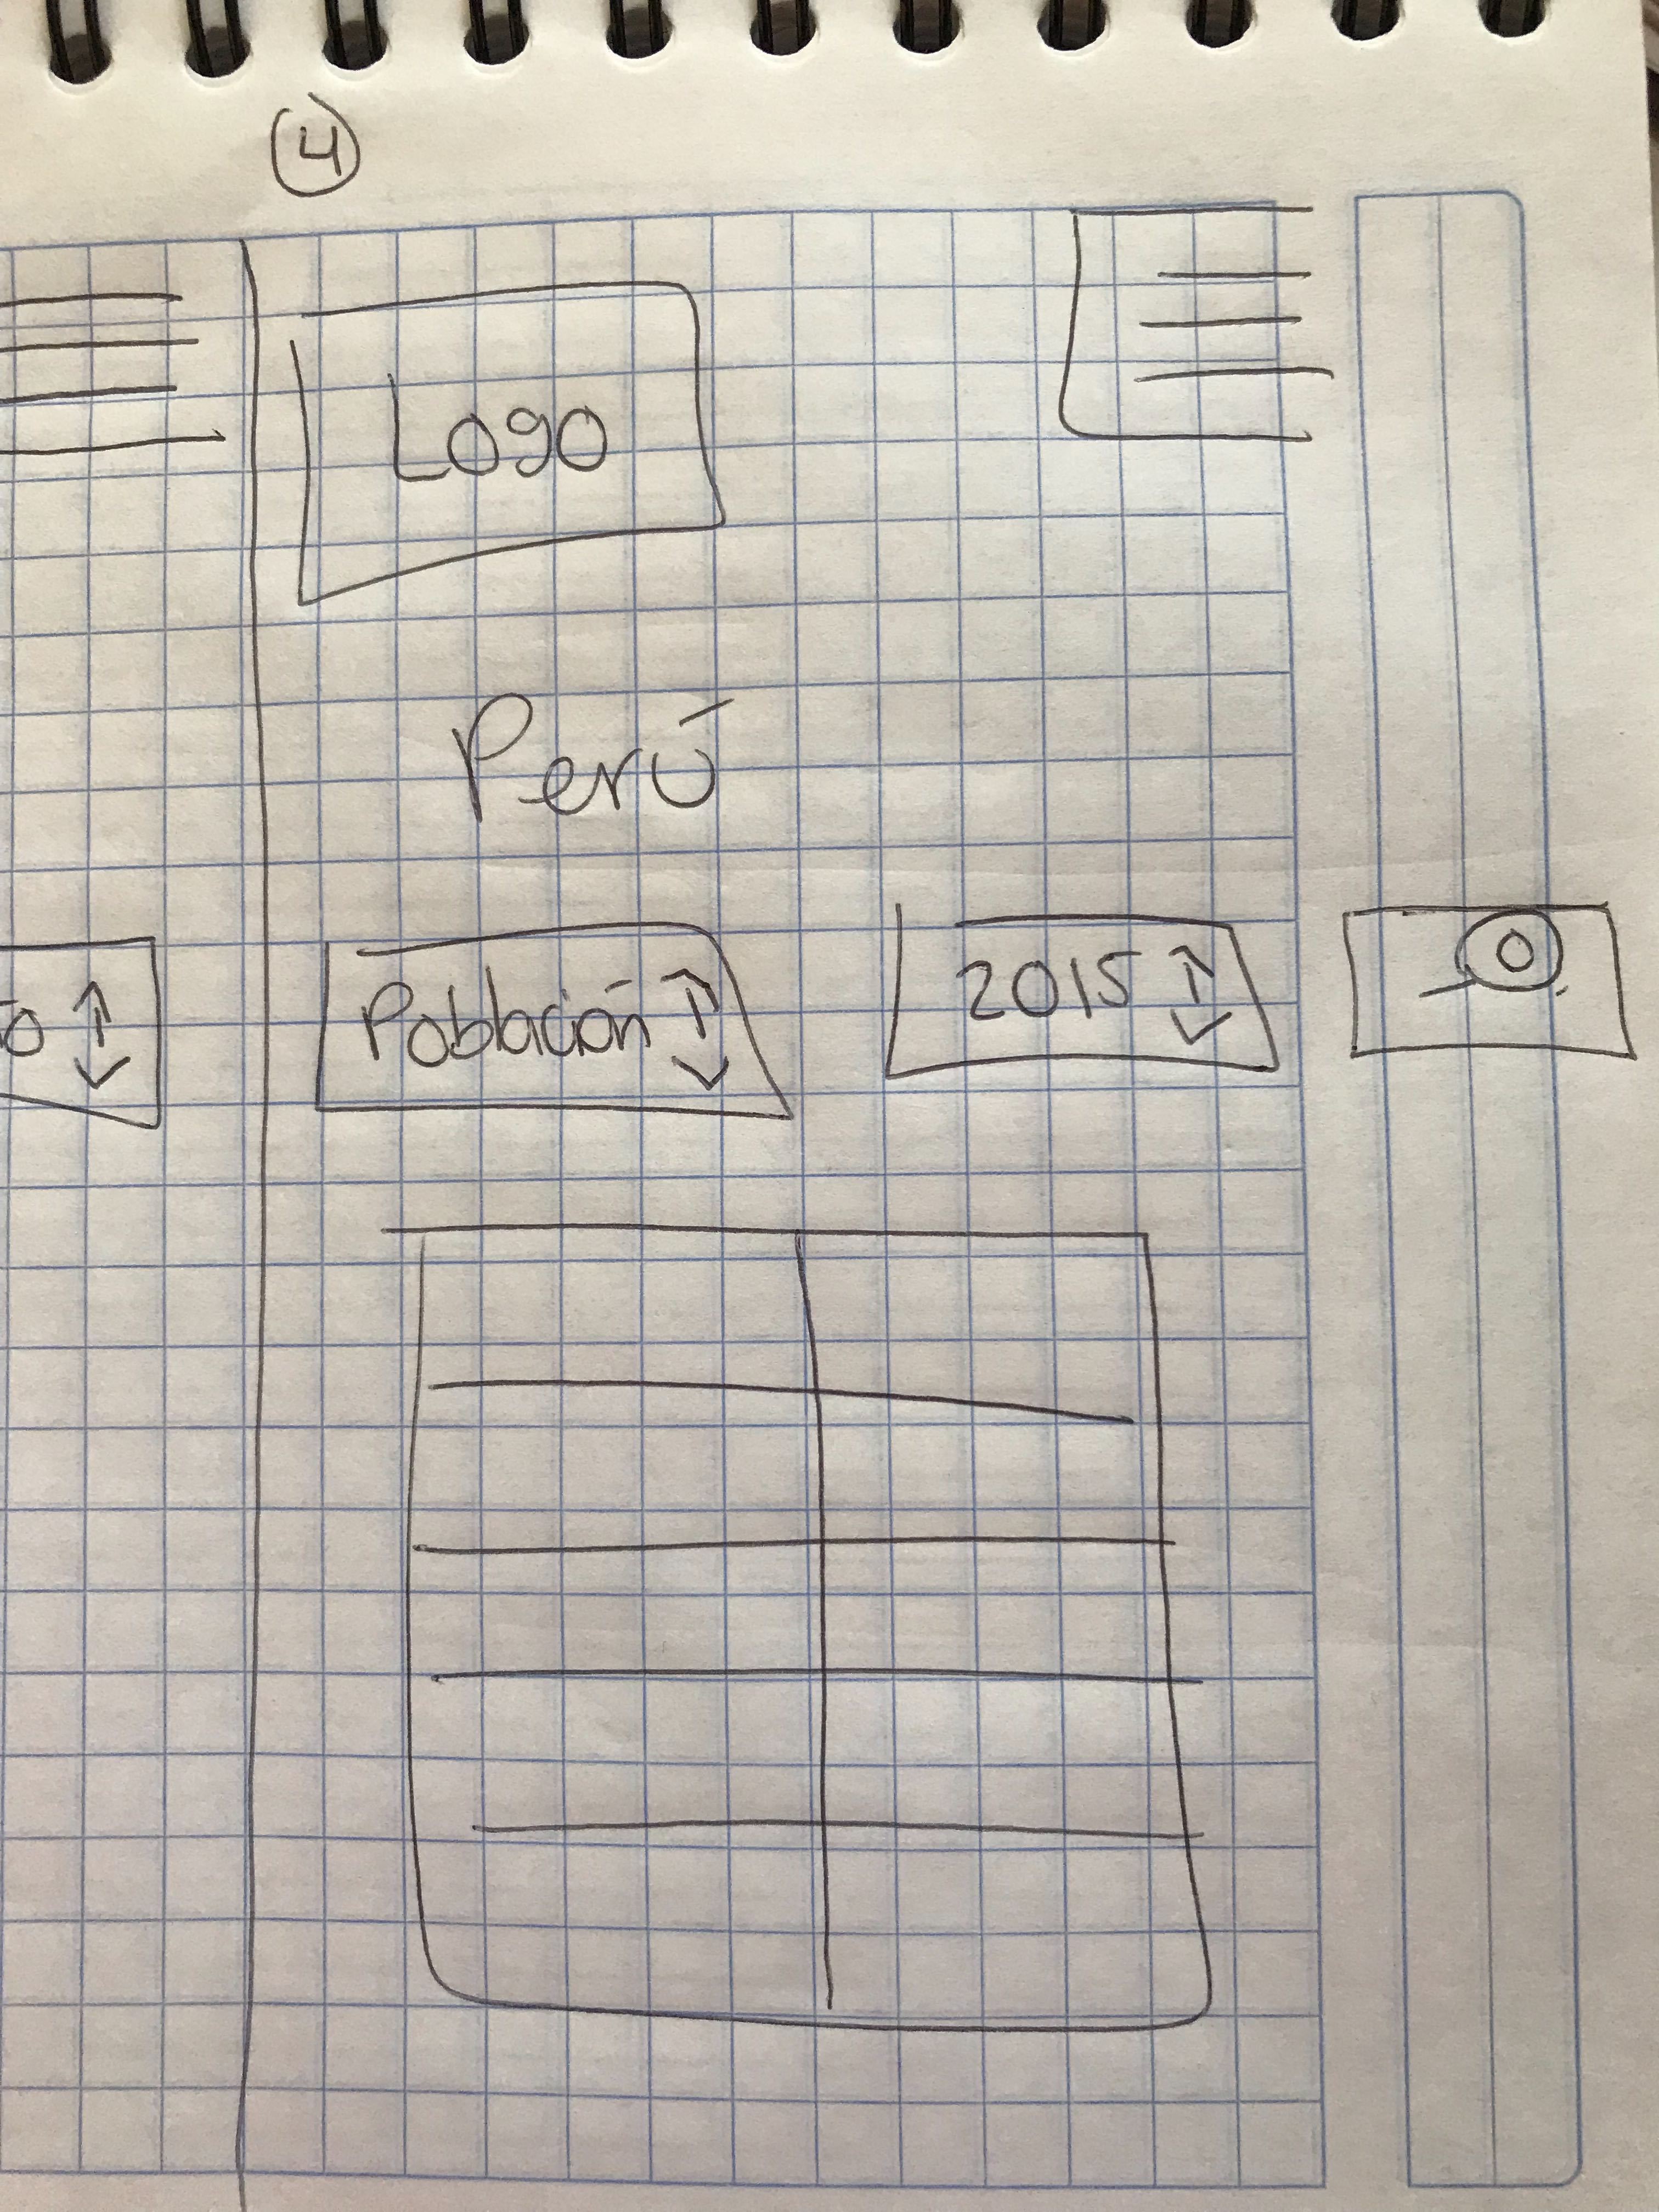 4
Logo
Perú
o
Población
2015